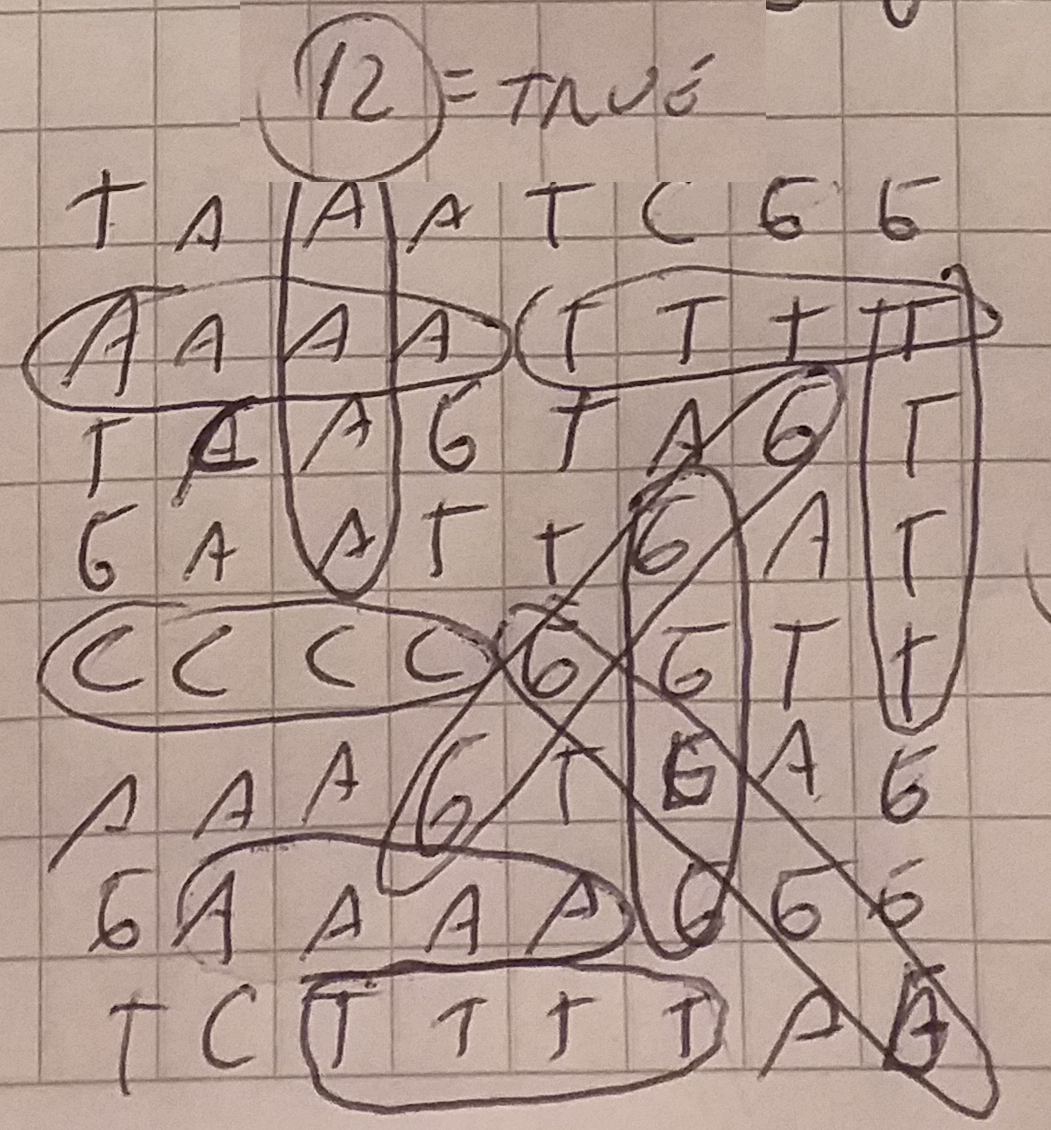 12 = TRUE
T A A A T C G G
A A A A T T T T
T A A G T A G T
G A A T T G A T
C C C C G G T T
A A A G T G A G
G A A A A G G G
T C T T T T A